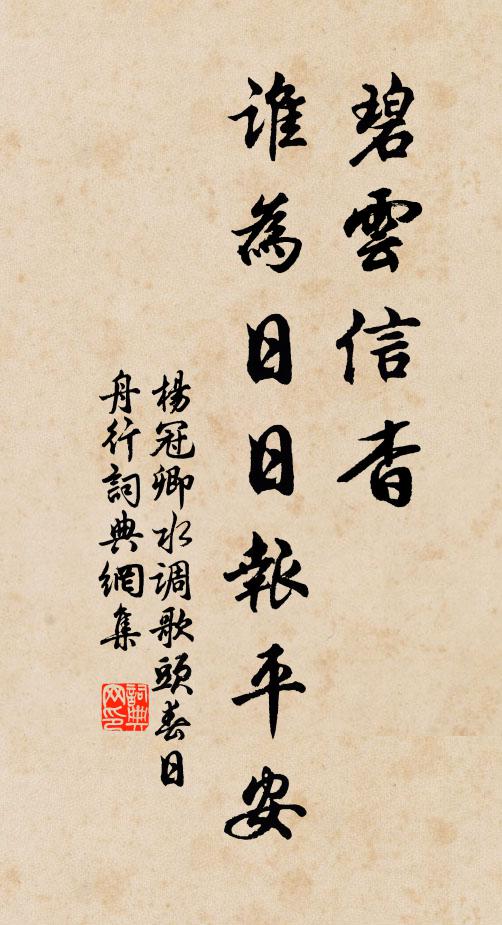 碧雲信杳
誰為日日報平安
楊冠卿水調歌頭春日
舟行詞典網集
詞典
网印